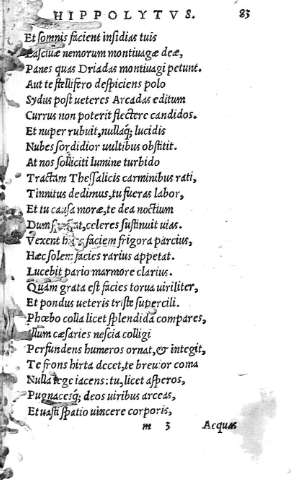 HIPPOLYTVS. 83
Et somnis facient insidias tuis
Lasciuæ nemorum montiuagæ deæ,
Panes quas Driadas montiuagi petunt.
Aut te stellifero despiciens polo
Sydus post ueteres Arcadas editum
Currus non poterit flectere candidos.
Et nuper rubuit, nullaq; lucidis
Nubes sordidior uultibus obstitit.
At nos solliciti lumine turbido
Tractam Thessalicis carminibus rati,
Tinnitus dedimus, tu fueras labor,
Et tu causa moræ, te dea noctium
Dum celeres sustinuit uias.
Vexent hanc faciem frigora parcius,
Hæc solem facies rarius appetat.
Lucebit pario marmore clarius.
Quam grata est facies torua uiriliter,
Et pondus ueteris triste supercili.
Phœbo colla licet splendida compares,
Illum cæsaries nescia colligi
Perfundens humeros ornat, & integit,
Te frons hirta decet, te breuior coma
Nulla lege iacens: tu, licet asperos,
Pugnacesq; deos uiribus arceas,
Et uasti spatio uincere corporis,
m 3 Aequas